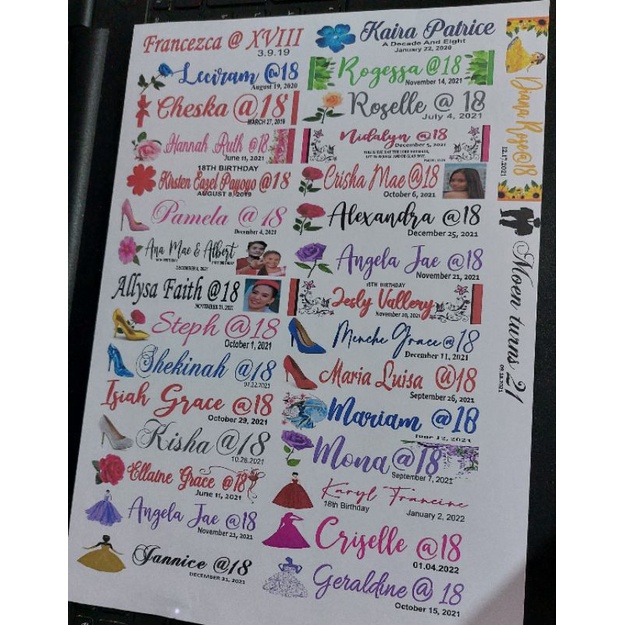 Francezca @ XVIII
3.9.19
Leciram @18
August 19, 2020
Cheska @18
MARCH 27, 2019
Hannah Ruth @18
June 11, 2021
18TH BIRTHDAY
Kirsten Eazel Payoyo @18
AUGUST 9, 2019
Pamela @ 18
December 4, 2021
Ana Mae & Albert
Allysa Faith @18
NOVEMBER 21, 2021
Steph @18
October 1, 2021
Shekinah @18
01.22.2021
Isiah Grace @18
October 29, 2021
Kisha @18
10.28.2021
Ellaine Grace @18
June 11, 2021
Angela Jae @18
November 21, 2021
Jannice @18
DECEMBER 21, 2021
Kaira Patrice
A Decade And Eight
January 22, 2020
Rogessa @18
November 14, 2021
Roselle @ 18
July 4, 2021
Nidalyn @18
December 5, 2021
Crisha Mae @18
October 6, 2021
Alexandra @18
December 25, 2021
Angela Jae @18
November 21, 2021
18TH BIRTHDAY
Jesly Vallery
November 20, 2021
Menche Grace @18
December 11, 2021
Maria Luisa @18
September 26, 2021
Mariam @18
June 12, 2021
Mona @18
September 7, 2021
Karyl Francine
18th Birthday
January 2, 2022
Criselle @18
01.04.2022
Geraldine @ 18
October 15, 2021
Diana Rose @18
12.17.2021
Moen turns 21